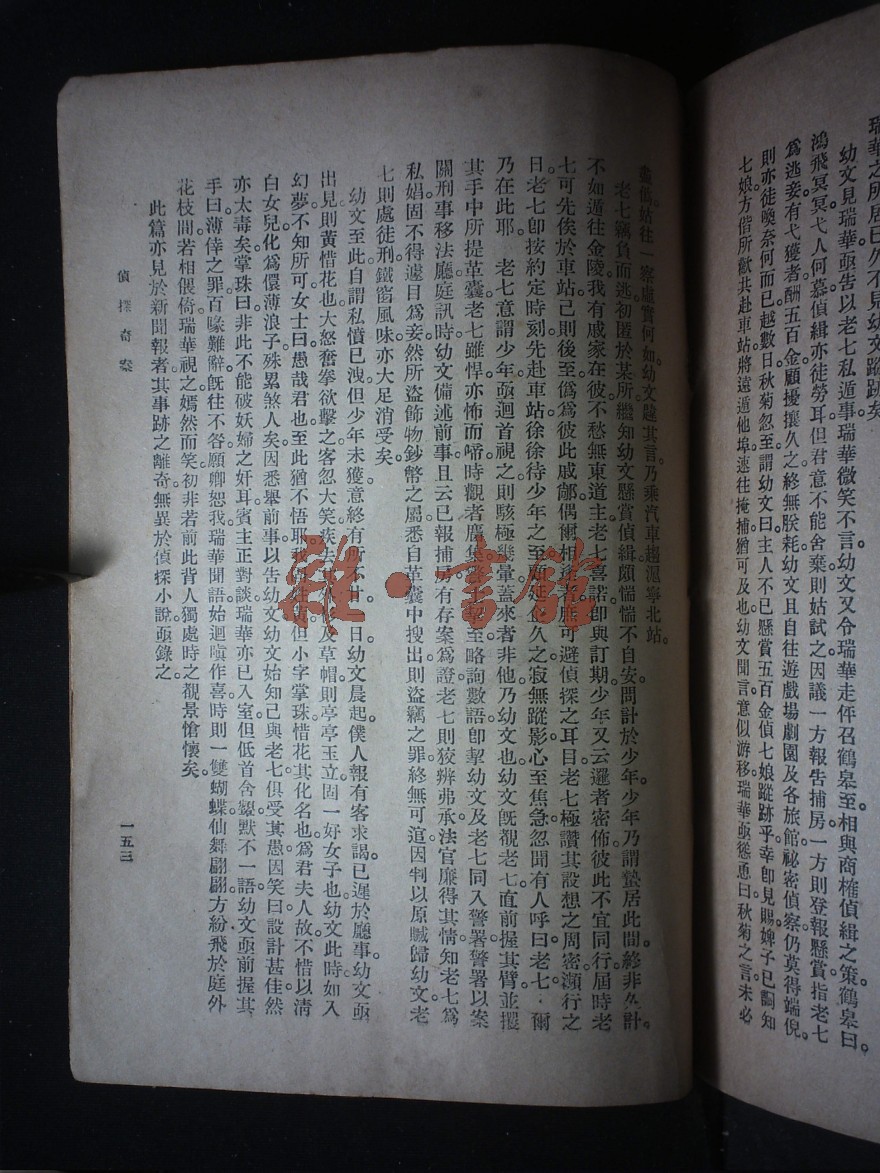 瑞華之所居已久不見幼文蹤跡矣
幼文見瑞華亟告以老七私遁事瑞華微笑不言幼文又令瑞華走伻召鶴皋至相與商榷偵緝之策鶴皋曰。
鴻飛冥冥弋人何慕偵緝亦徒勞耳但君意不能舍棄則姑試之因議一方報告捕房一方則登報懸賞指老七
爲逃妾有弋獲者酬五百金顧擾攘久之終無朕耗幼文且自往遊戲場劇園及各旅館祕密偵察仍莫得端倪。
則亦徒喚奈何而已越數日秋菊忽至謂幼文曰主人不已懸賞五百金偵七娘蹤跡乎幸卽見賜婢子已調知
七娘方偕所歡共赴車站將遠遁他埠速往掩捕猶可及也幼文聞言意似游移瑞華亟慫恿曰秋菊之言未必
虛僞姑往一察虛實何如幼文韙其言乃乘汽車趨滬寧北站。
老七竊負而逃初匿於某所繼知幼文懸賞偵緝頗惴惴不自安問計於少年少年乃謂蟄居此間終非久計。
不如遁往金陵我有戚家在彼不愁無東道主老七喜諾卽與訂期少年又云邏者密佈彼此不宜同行屆時老
七可先俟於車站己則後至僞爲彼此戚鄰偶爾相逢者庶可避偵探之耳目老七極讚其設想之周密瀕行之
日老七卽按約定時刻先赴車站徐徐待少年之至顧延企久之寂無蹤影心至焦急忽聞有人呼曰老七·爾
乃在此耶。老七意謂少年亟迴首視之則駭極幾暈蓋來者非他乃幼文也幼文旣覩老七直前握其臂並攫
其手中所提革囊老七雖悍亦怖而啼時觀者麕集警至略詢數語卽挈幼文及老七同入警署警署以案
關刑事移法庭庭訊時幼文備述前事且云已報捕房有存案爲證老七則狡辨弗承法官廉得其情知老七爲
私娼固不得遽目爲妾然所盜飾物鈔幣之屬悉自革囊中搜出則盜竊之罪終無可逭因判以原贓歸幼文老
七則處徒刑鐵窗風味亦大足消受矣。
幼文至此自謂私憤已洩但少年未獲意終有所不甘日幼文晨起僕人報有客求謁已遲於廳事幼文亟
出見則黃惜花也大怒奮拳欲擊之客忽大笑疾去及草帽則亭亭玉立固一好女子也幼文此時如入
幻夢不知所可女士曰愚哉君也至此猶不悟耶但小字掌珠惜花其化名也爲君夫人故不惜以淸
白女兒化爲儇薄浪子殊累煞人矣因悉舉前事以告幼文幼文始知己與老七俱受其愚因笑曰設計甚佳然
亦太毒矣掌珠曰非此不能破妖婦之奸耳賓主正對談瑞華亦已入室但低首含顰默不一語幼文亟前握其
手曰薄倖之罪百喙難辭旣往不咎願卿恕我瑞華聞語始迴瞋作喜時則一雙蝴蝶仙舞翩翩方紛飛於庭外
花枝間若相偎倚瑞華視之嫣然而笑初非若前此背人獨處時之覩景愴懷矣。
此篇亦見於新聞報者其事跡之離奇無異於偵探小說亟錄之。
偵探奇案
一五三
雜·書館